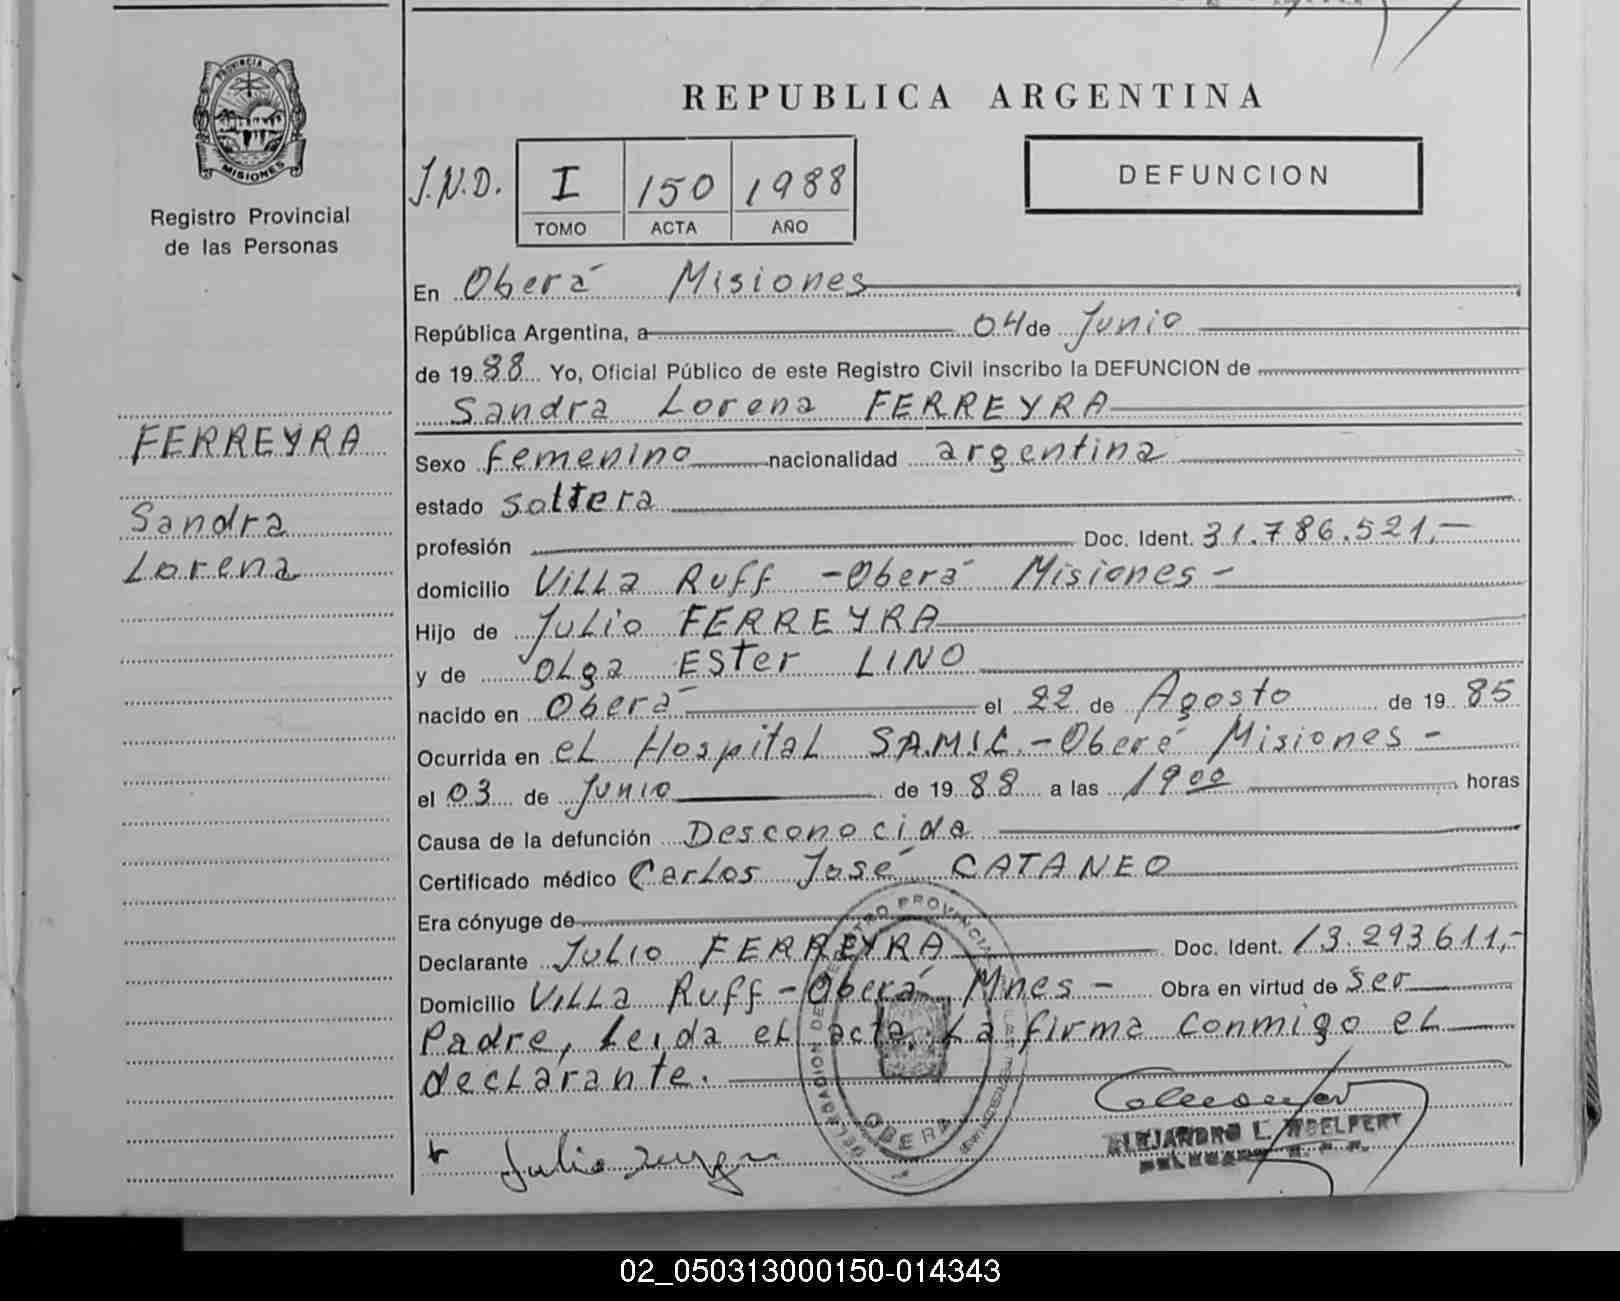 PROVINCIA DE
MISIONES
Registro Provincial
de las Personas
FERREYRA
Sandra
Lorena
REPUBLICA ARGENTINA
J.N.D. I 150 1988
TOMO ACTA AÑO
DEFUNCION
En Oberá Misiones
República Argentina, a 04 de Junio
de 1988 Yo, Oficial Público de este Registro Civil inscribo la DEFUNCION de
Sandra Lorena FERREYRA
Sexo femenino nacionalidad argentina
estado soltera
profesión Doc. Ident. 31.786.521,-
domicilio Villa Ruff - Oberá Misiones -
Hijo de Julio FERREYRA
y de Olga Ester LINO
nacido en Oberá el 22 de Agosto de 1985
Ocurrida en el Hospital SA.M.I.C. - Oberá Misiones -
el 03 de Junio de 1988 a las 19 00 horas
Causa de la defunción Desconocida
Certificado médico Carlos José CATANEO
Era cónyuge de
Declarante Julio FERREYRA Doc. Ident. 13.293611,-
Domicilio Villa Ruff - Oberá Mnes - Obra en virtud de ser
Padre, leida el acta, la firma conmigo el
declarante.
DELEGACION DE REGISTRO PROVINCIAL
OBERA
Julio
ALEJANDRO L.
02_050313000150-014343